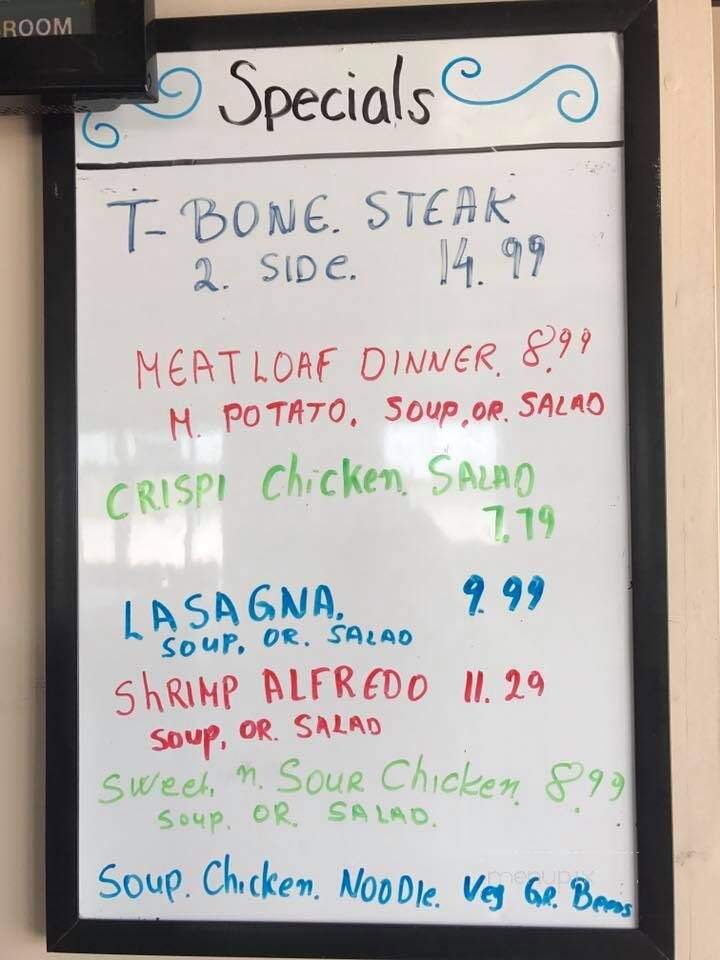 ROOM
Specials
T-BONE. STEAK
2. SIDE. 14.99
MEATLOAF DINNER. 8.99
M. POTATO. SOUP, OR. SALAD
CRISPI Chicken. SALAD
7.79
LASAGNA. 9.99
SOUP. OR. SALAD
ShRIMP ALFREDO 11.29
Soup, OR. SALAD
Sweet. n. Sour Chicken. 8.99
Soup. OR. SALAD.
Soup. Chicken. NOODle. Veg GR. Beens
menupix